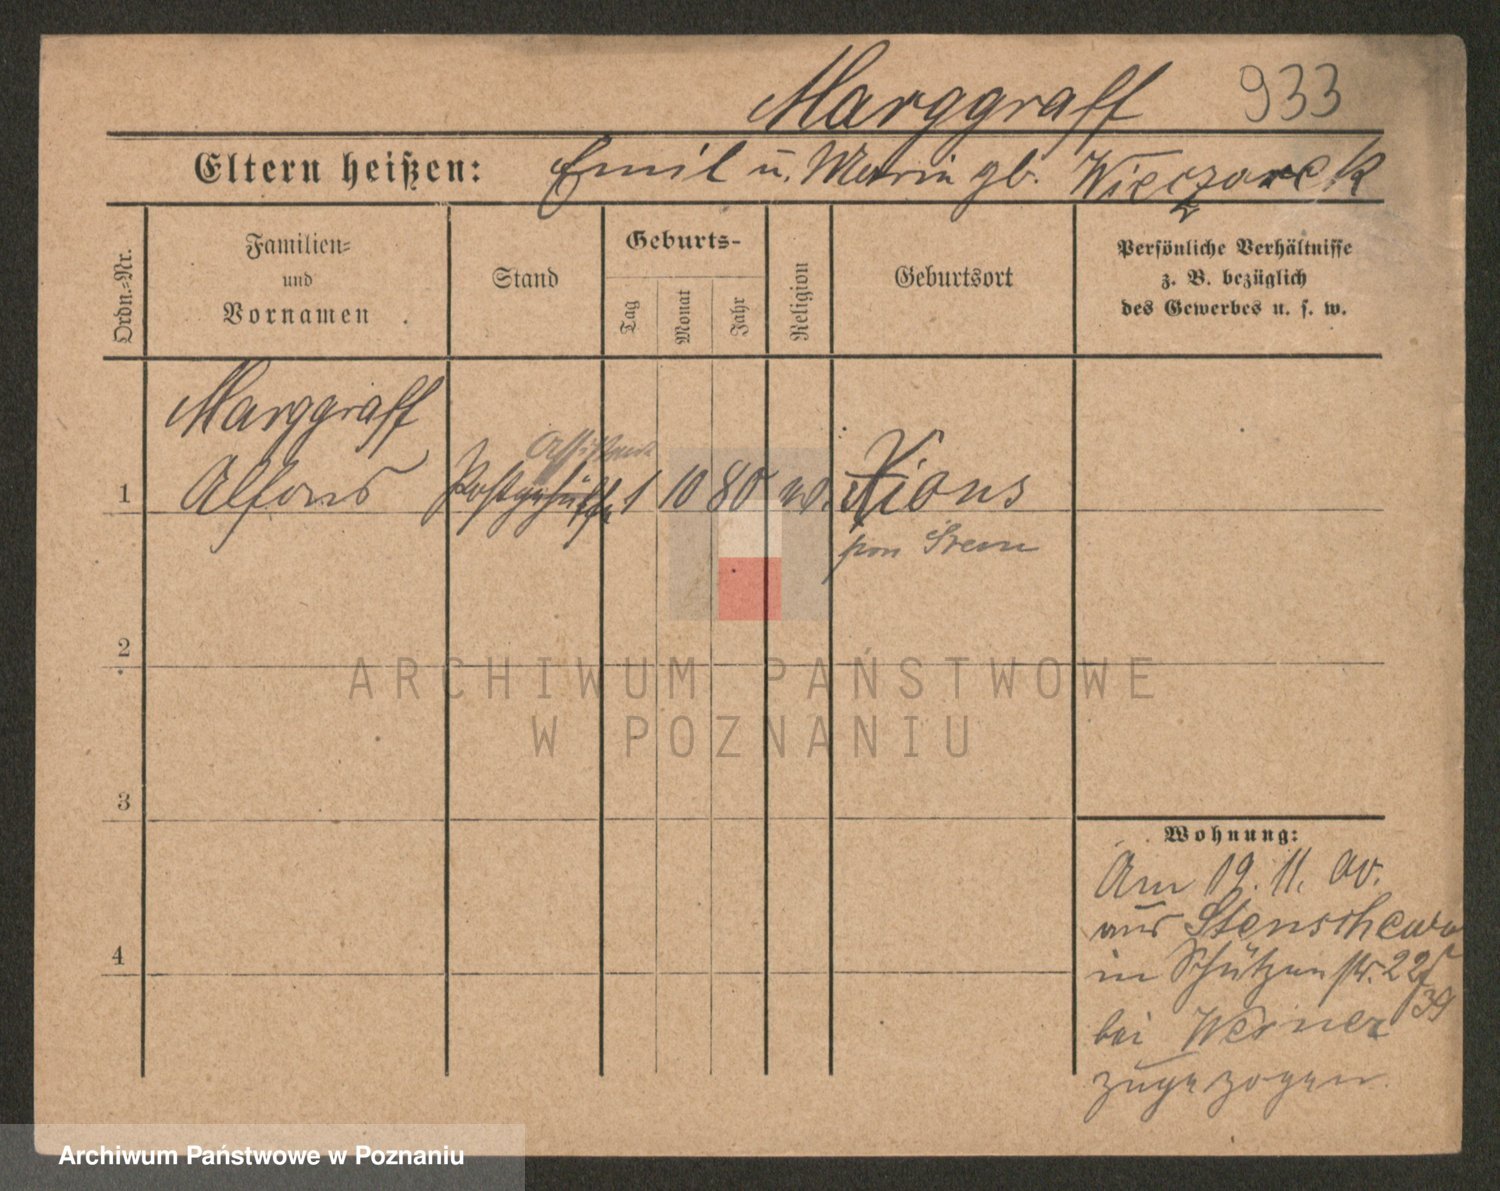 Marggraff 933
Eltern heißen: Emil u. Marie gb. Wieczorek
Ordn.-Nr.
Familien-
und
Vornamen
Stand
Geburts-
Tag
Monat
Jahr
Religion
Geburtsort
Persönliche Verhältnisse
z. B. bezüglich
des Gewerbes u. s. w.
Marggraff
Assistent
1 Alfons Postgehülfe 1 10 80 Xions
Srem
2
ARCHIWUM PAŃSTWOWE
W POZNANIU
3
Wohnung:
Am 19. 11. 00.
aus Stenschewo
4
in Schützenstr. 22
39
bei Werner
zugezogen
Archiwum Państwowe w Poznaniu